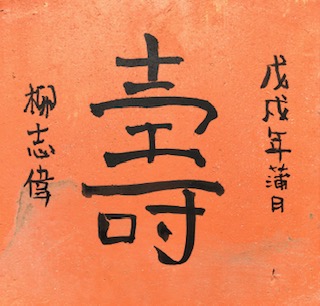 戊戌年蒲月
壽
柳志偉